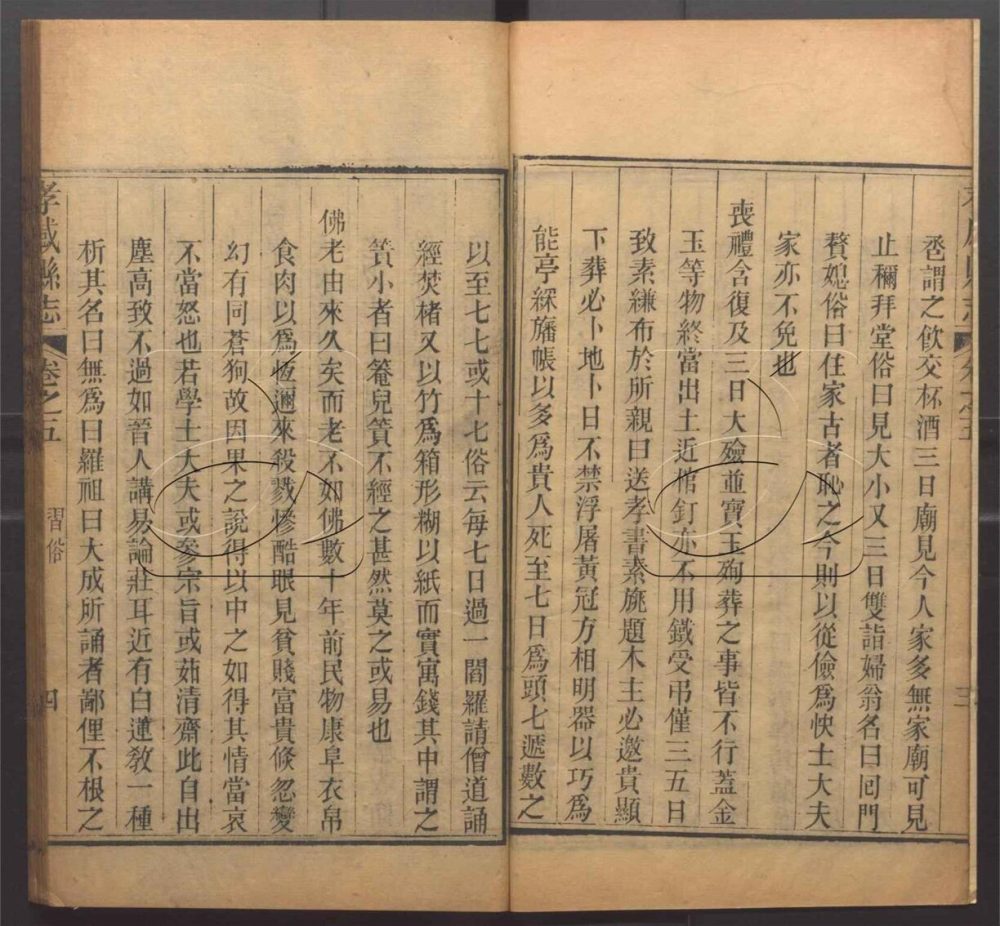 卺謂之飲交杯酒三日廟見今人家多無家廟可見
止禰拜堂俗曰見大小又三日雙詣婦翁名曰囘門
贅媳俗曰住家古者恥之今則以從儉爲快士大夫
家亦不免也
喪禮含復及三日大殮並寶玉殉葬之事皆不行蓋金
玉等物終當出土近棺釘亦不用鐵受弔僅三五日
致素縑布於所親曰送孝書素旐題木主必邀貴顯
下葬必卜地卜日不禁浮屠黃冠方相明器以巧爲
能亭綵旛帳以多爲貴人死至七日爲頭七遞數之
以至七七或十七俗云每七日過一閻羅請僧道誦
經焚楮又以竹爲箱形糊以紙而實寓錢其中謂之
篢小者曰篭兒篢不經之甚然莫之或易也
佛老由來久矣而老不如佛數十年前民物康阜衣帛
食肉以爲恆邇來殺戮慘酷眼見貧賤富貴倐忽變
幻有同蒼狗故因果之說得以中之如得其情當哀
不當怒也若學士大夫或參宗旨或茹清齋此自出
塵高致不過如晉人講易論莊耳近有白蓮敎一種
析其名曰無爲曰羅祖曰大成所誦者鄙俚不根之
孝感縣志
卷之五
習俗
四